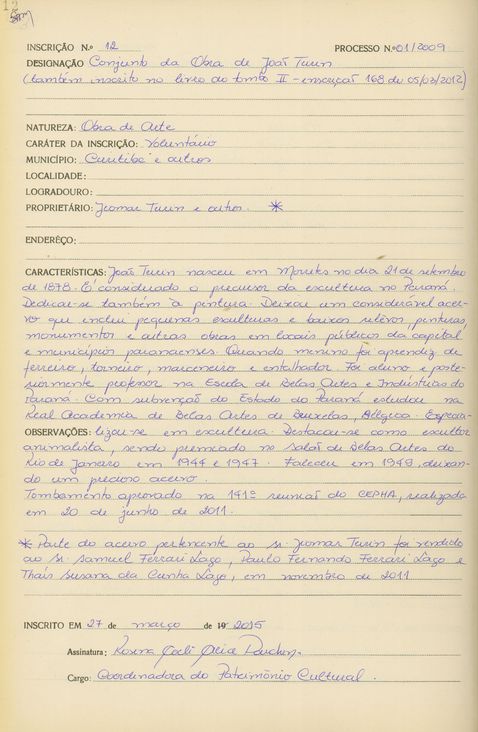 12
INSCRIÇÃO N.º 12 PROCESSO N.º 01/2009
DESIGNAÇÃO Conjunto da Obra de João Turin
(também inscrito no livro do tombo II - inscrição 168 de 05/03/2012)
NATUREZA: Obra de Arte
CARÁTER DA INSCRIÇÃO: Voluntário
MUNICÍPIO: Curitiba e outros
LOCALIDADE:
LOGRADOURO:
PROPRIETÁRIO: Jiomar Turin e outros. *
ENDERÊÇO:
CARACTERÍSTICAS: João Turin nasceu em Morretes no dia 21 de setembro
de 1878. É considerado o precursor da escultura no Paraná.
Dedicou-se também à pintura. Deixou um considerável acer-
vo que inclui pequenas esculturas e baixos relevos, pinturas,
monumentos e outras obras em locais públicos da capital
e municípios paranaenses. Quando menino foi aprendiz de
ferreiro, torneiro, marceneiro e entalhador. Foi aluno e poste-
riormente professor na Escola de Belas Artes e Indústrias do
Paraná. Com subvenção do Estado do Paraná estudou na
Real Academia de Belas Artes de Bruxelas, Bélgica. Especia-
OBSERVAÇÕES: lizou-se em escultura. Destacou-se como escultor
animalista, sendo premiado no Salão de Belas Artes do
Rio de Janeiro em 1944 e 1947. Faleceu em 1949, deixan-
do um precioso acervo.
Tombamento aprovado na 141ª reunião do CEPHA, realizada
em 20 de junho de 2011.
* Parte do acervo pertencente ao sr. Jiomar Turin foi vendido
ao sr. Samuel Ferrari Lago, Paulo Fernando Ferrari Lago e
Thaís Susana da Cunha Lago, em novembro de 2011
INSCRITO EM 27 de março de 19 2015
Assinatura: Rosina
Cargo: Coordenadora do Patrimônio Cultural.